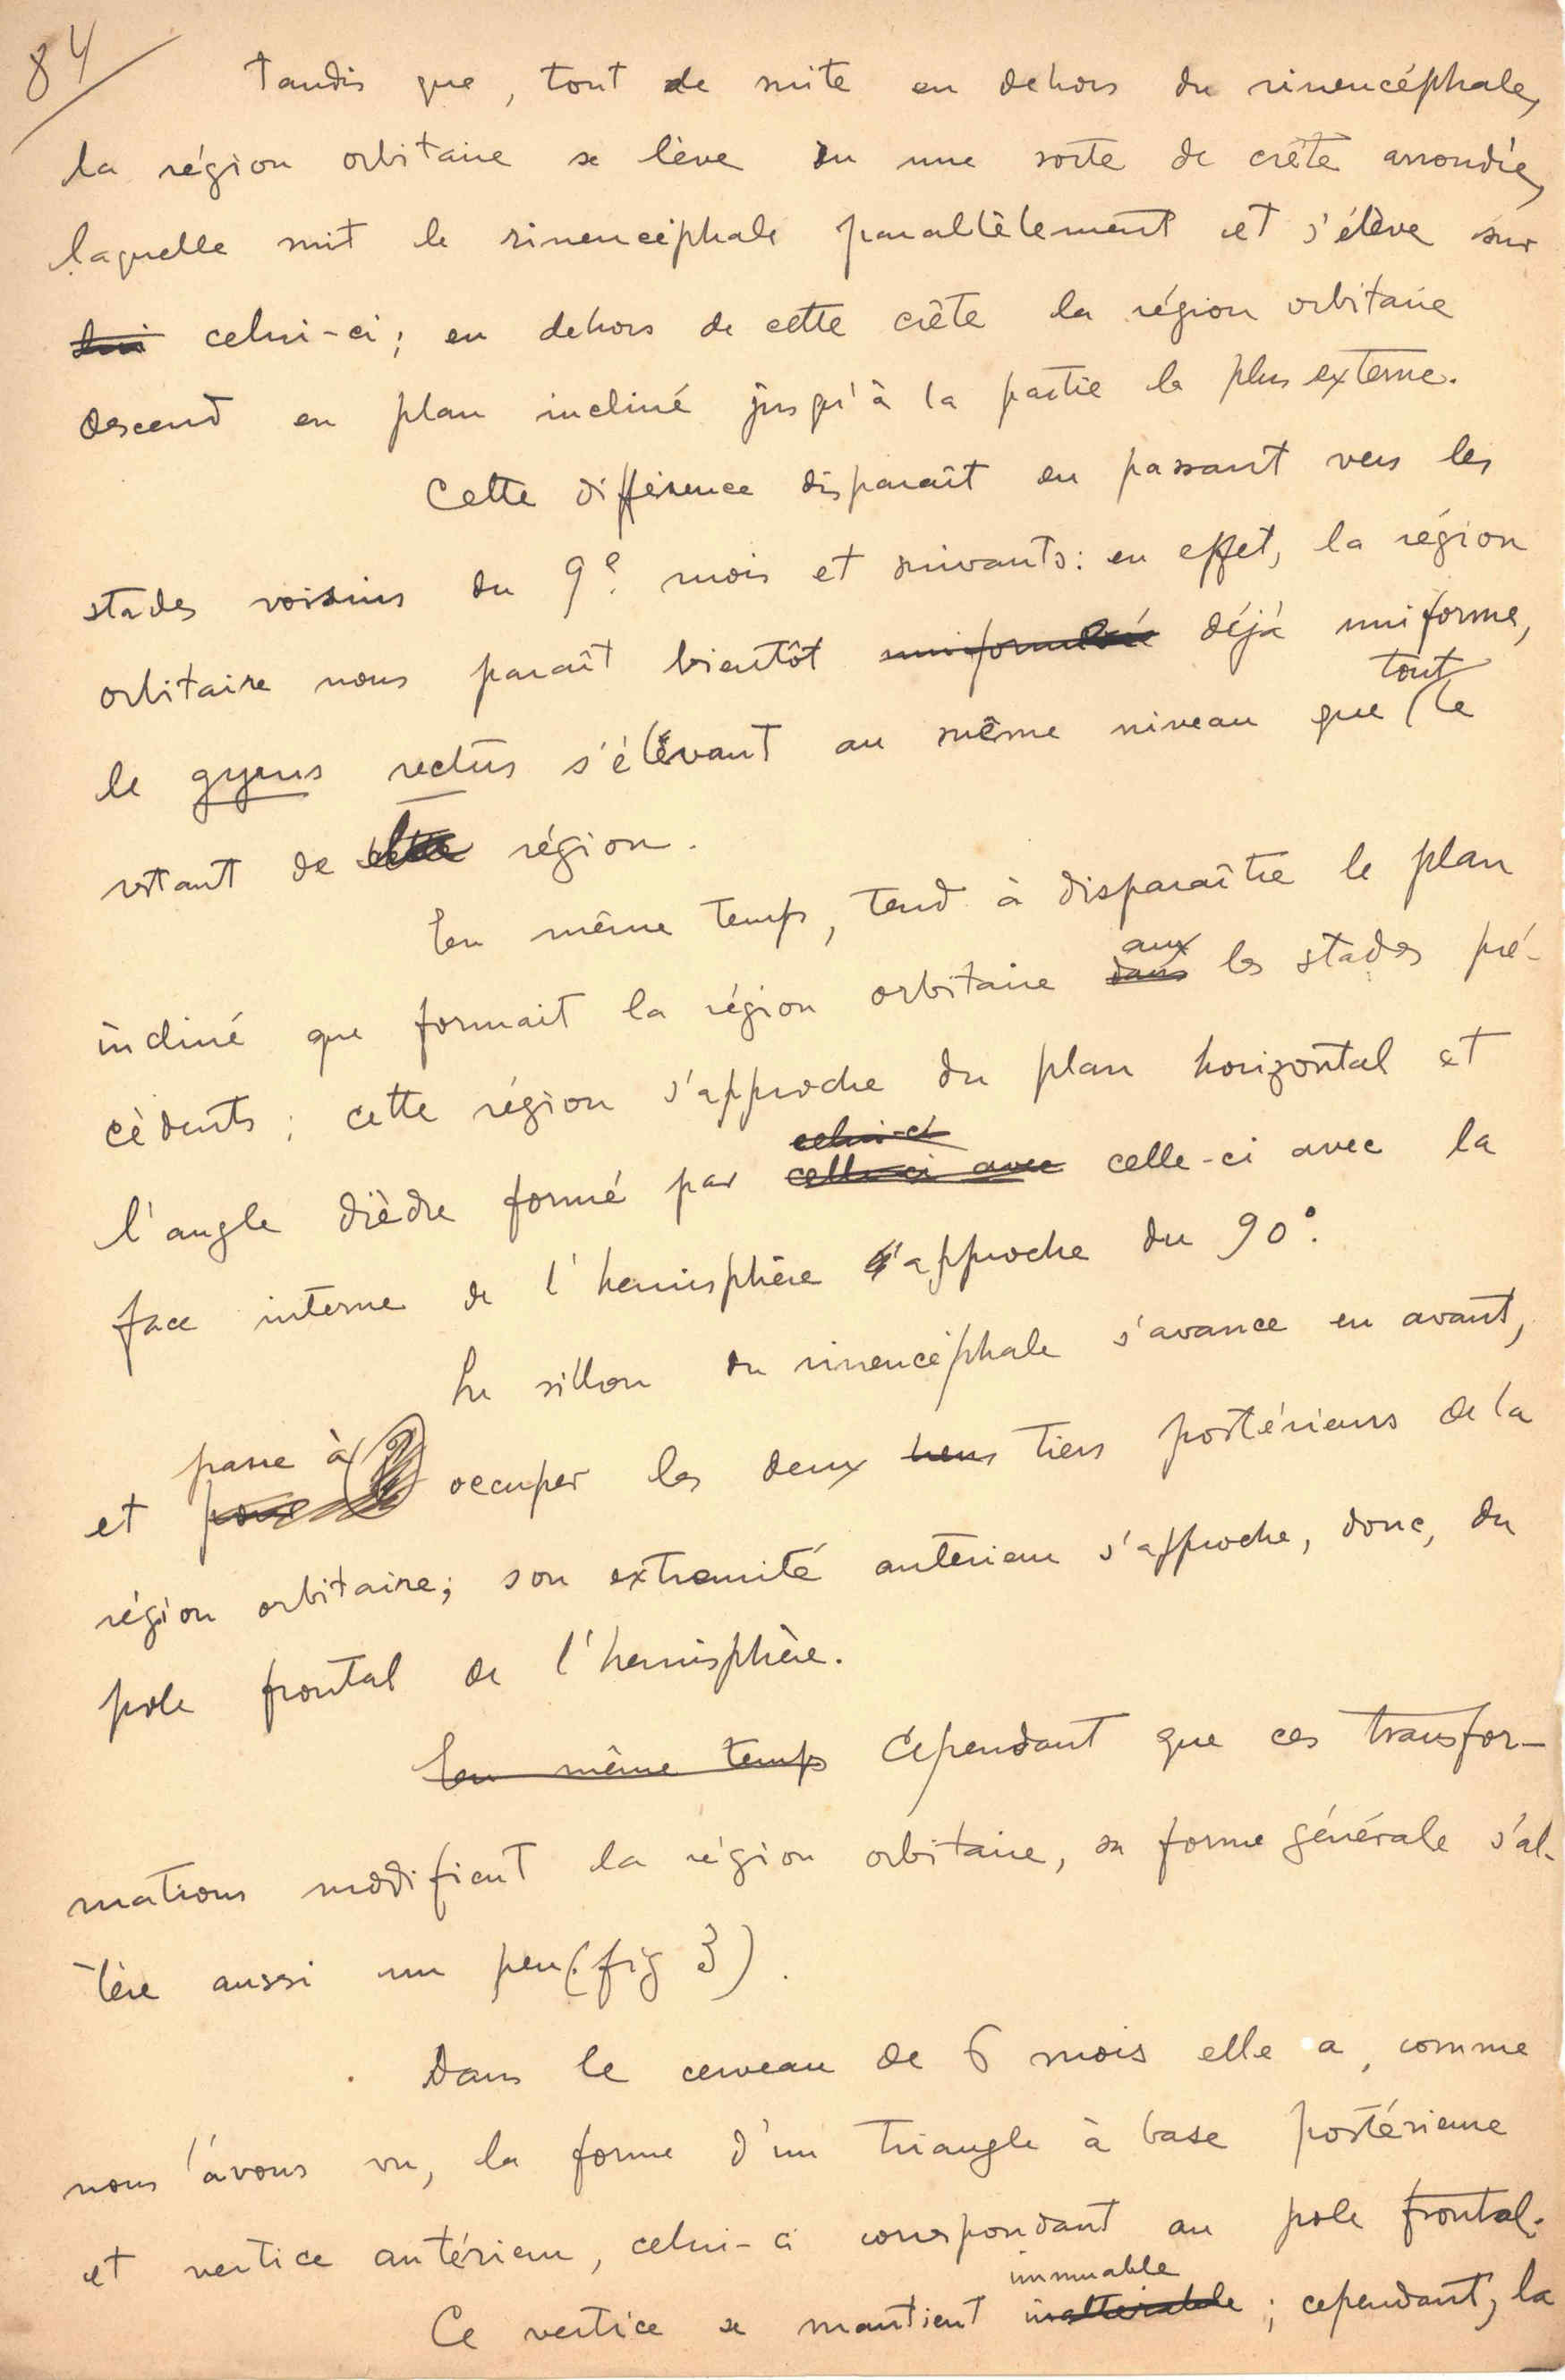 84
tandis que, tout de suite en dehors du rinencéphale,
la région orbitaire se lève en une sorte de crête arrondie,
laquelle suit le rinencéphale parallèlement et s'élève sur
lui celui-ci; en dehors de cette crête la région orbitaire
descend en plan incliné jusqu'à la partie la plus externe.
Cette différence disparaît en passant vers les
stades voisins du 9e mois et suivants: en effet, la région
orbitaire nous paraît bientôt déjà uniforme,
tout
le gyrus rectus s'élévant au même niveau que le
restant de la région.
En même temps, tend à disparaître le plan
aux
incliné que formait la région orbitaire dans les stades pré-
cédents; cette région s'approche du plan horizontal et
celui-ci
l'angle dièdre formé par celle-ci avec celle-ci avec la
face interne de l'hemisphère s'approche du 90°.
Le sillon du rinencéphale s'avance en avant,
passe à
et occuper les deux tiers postérieurs de la
région orbitaire; son extremité anterieur s'approche, donc, du
pole frontal de l'hemisphère.
En même temps Cépendant que ces transfor-
mations modifient la région orbitaire, sa forme générale s'al-
tère aussi un peu (fig 3).
Dans le cerveau de 6 mois elle a, comme
nous l'avons vu, la forme d'un triangle à base postérieure
et vertice antérieur, celui-ci correspondant au pole frontal.
immuable
Ce vertice se mantient inalterable; cependant, la